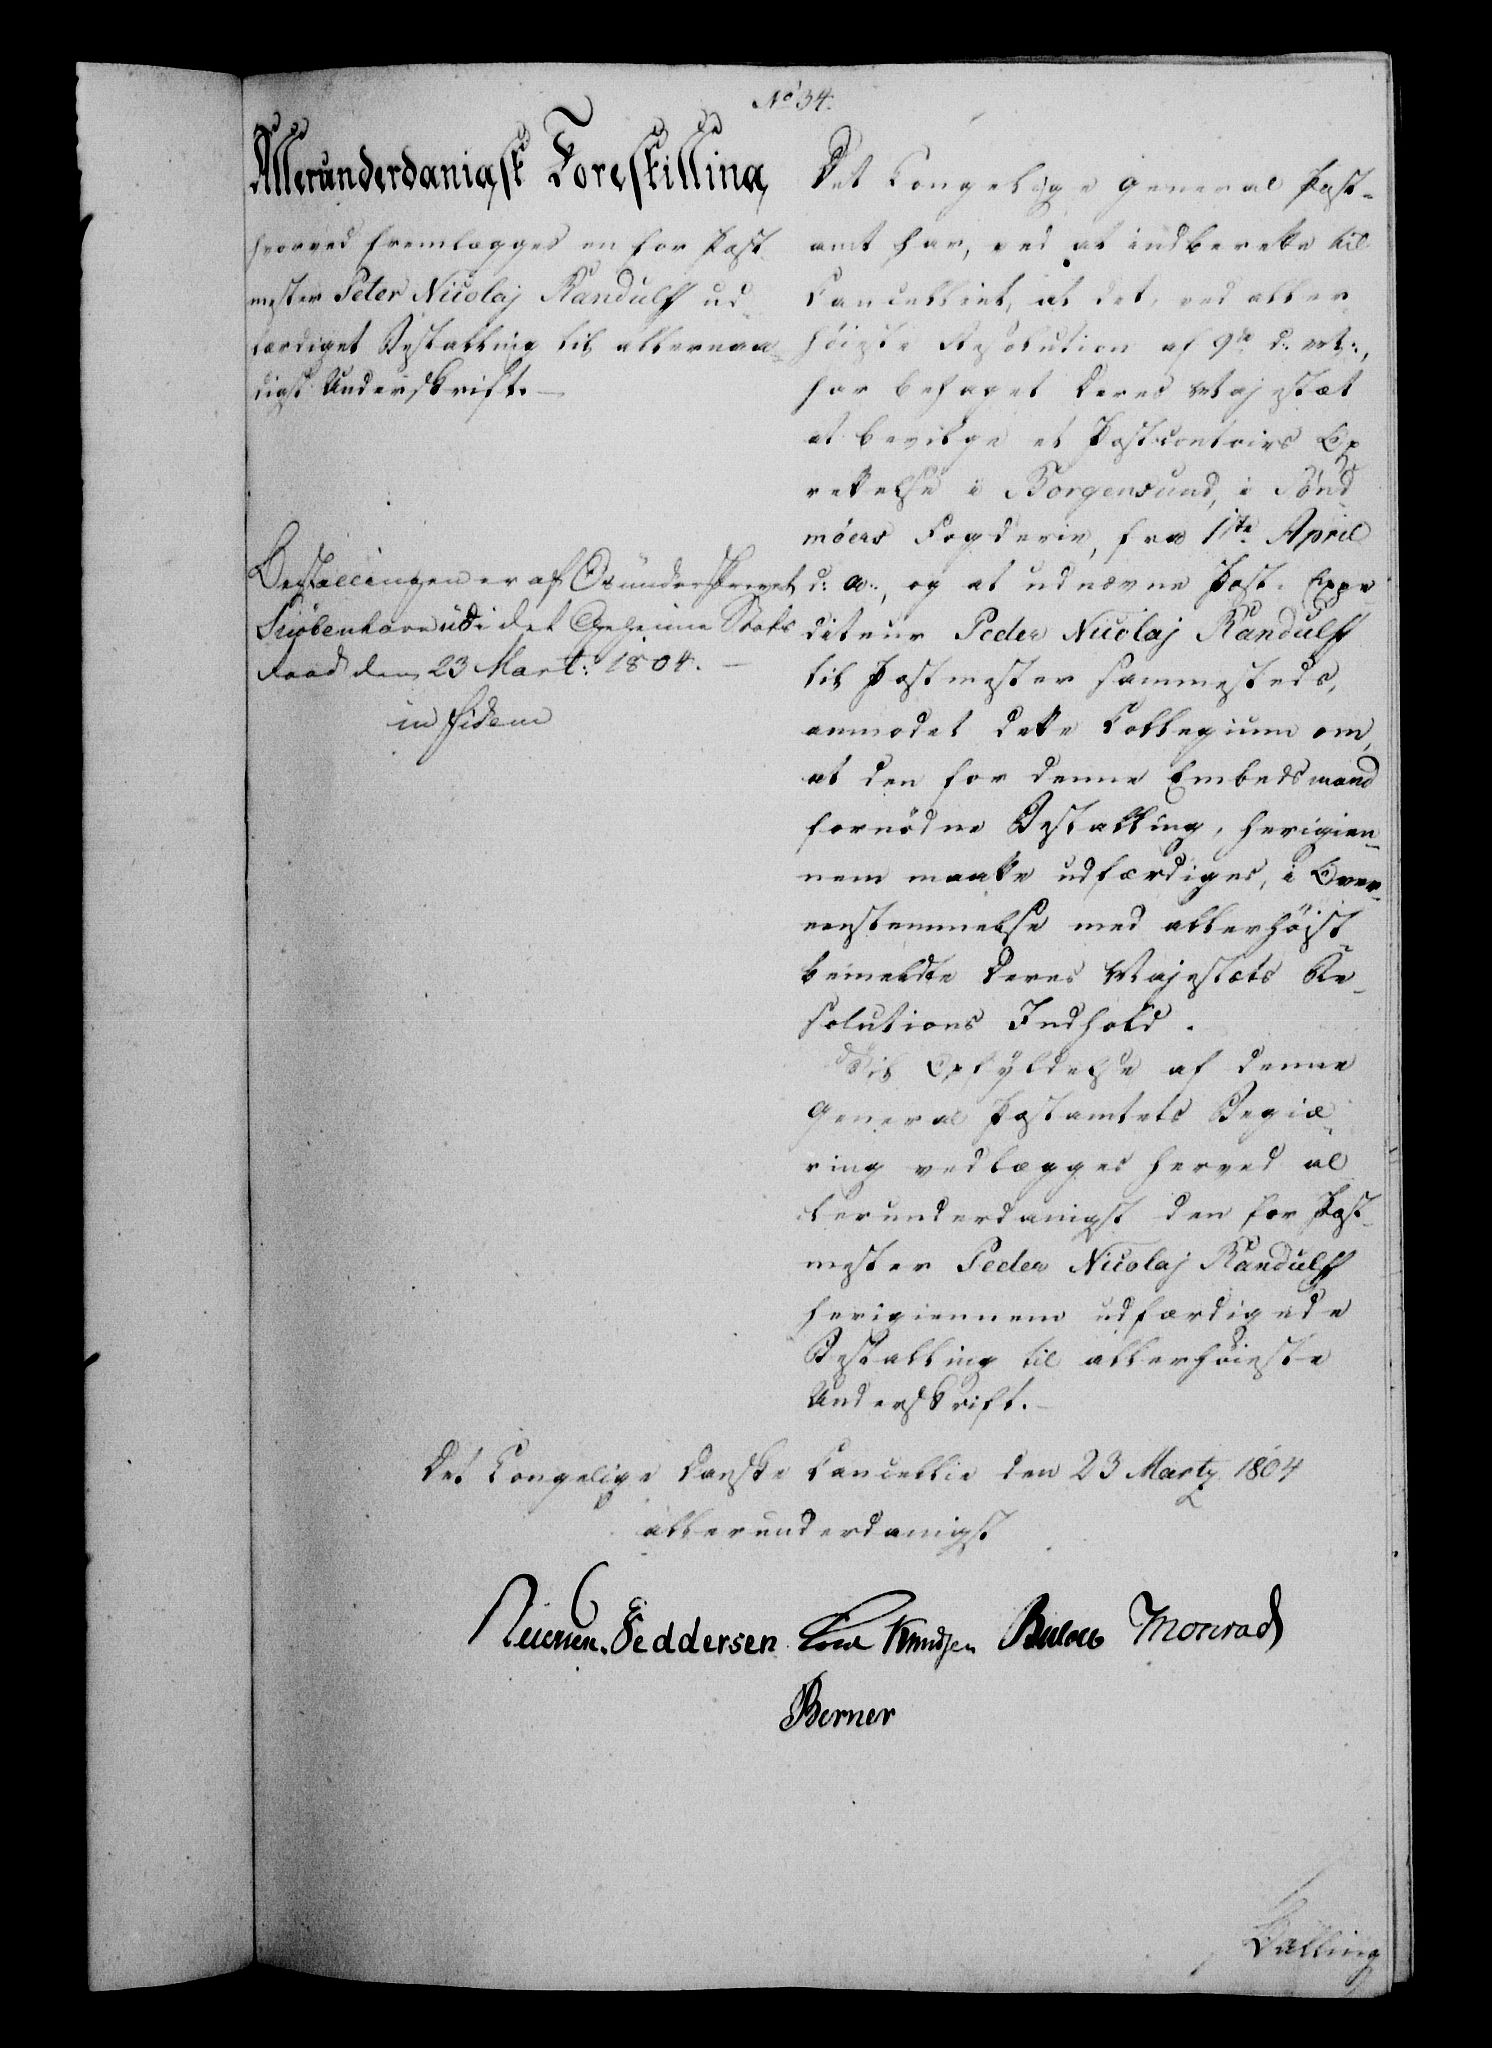 No 34.
Allerunderdanigsk Forestilling
hvorved fremlægges en for Post-
mester Peter Nicolaj Randulff ud-
færdiget Bestalling til allernaa-
digst Underskrift. —
Bestallingen er af Os underskrevet
Kiöbenhavn udi det Geheime Stats
Raad den 23 Mart: 1804. —
in fidem
Det Kongelige General Post-
amt har, ved at indberette til
Cancelliet, at det, ved aller-
höieste Resolution af 9de d: M:,
har behaget Deres Majestæt
at bevilge et Postcontoirs Op-
rettelse i Borgensund, i Sönd-
möers Fogderie, fra 1ste April
d: A:, og at udnævne Post-Expe-
diteur Peder Nicolaj Randulff
til Postmester sammesteds,
anmodet dette Collegium om,
at den for denne Embedsmand
fornödne Bestalling, herigien-
nem maatte udfærdiges, i Over-
eensstemmelse med allerhöist-
bemeldte Deres Majestæts Re-
solutions Indhold.
Til Opfyldelse af denne
General Postamtets Begiæ-
ring vedlægges herved al-
lerunderdanigst den for Post-
mester Peder Nicolaj Randulff
herigiennem udfærdigede
Bestalling til allerhöieste
Underskrift. —
Det Kongelige Danske Cancellie den 23 Marty 1804
allerunderdanigst
Feddersen Knudsen Bülow Monrad
Berner
Balling